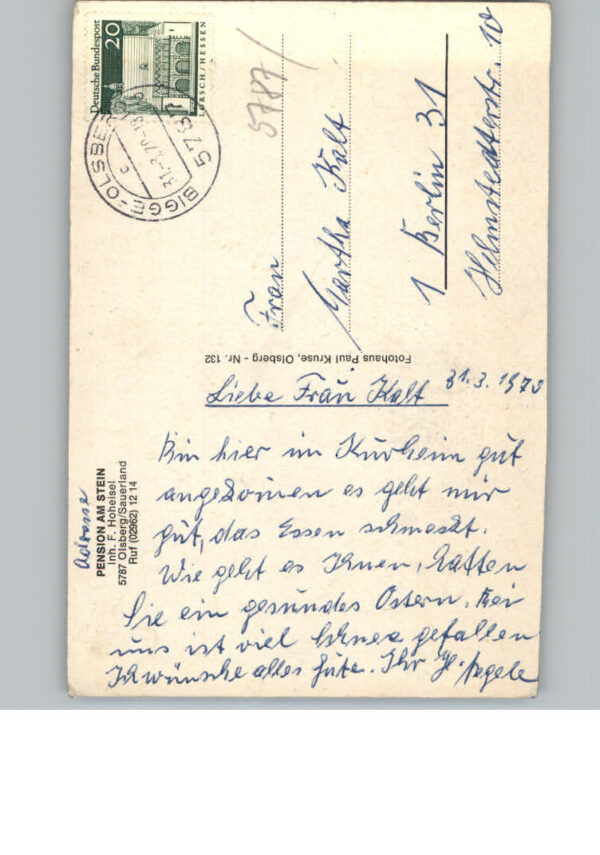 Deutsche Bundespost
20
LORSCH/HESSEN
BIGGE-OLSBERG
578
31.-3.70-13
c
5787/
Frau
Gertha Kalt
1 Berlin 31
Helmstedterstr. 10
Fotohaus Paul Kruse, Olsberg - Nr. 132
Adresse
PENSION AM STEIN
Inh. F. Hoheisel
5787 Olsberg/Sauerland
Ruf (02962) 12 14
Liebe Frau Kalt 31.3.1970
Bin hier im Kurheim gut
angekomen es geht mir
gut, das Essen schmeckt.
Wie geht es Ihnen, hatten
Sie ein gesundes Ostern. Bei
uns ist viel Schnee gefallen
Ich wünsche alles Gute. Ihr H.